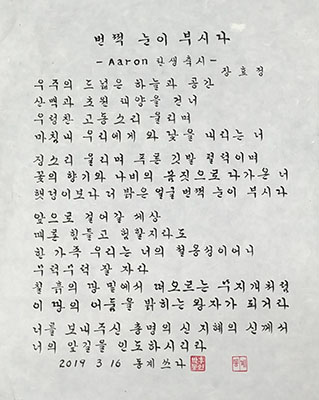 번쩍 눈이 부시다
- Aaron 탄생축시 -
장효정
우주의 드넓은 하늘과 공간
산맥과 초원 대양을 건너
우렁찬 고동소리 울리며
마침내 우리에게 와 닻을 내리는 너
징소리 울리며 푸른 깃발 펄럭이며
꽃의 향기와 나비의 몸짓으로 다가온 너
햇덩이보다 더 밝은 얼굴 번쩍 눈이 부시다
앞으로 걸어갈 세상
때론 힘들고 험할지라도
한 가족 우리는 너의 철옹성이어니
무럭무럭 잘 자라
찰 흙의 땅 밑에서 떠오르는 무지개처럼
이 땅의 어둠을 밝히는 왕자가 되거라
너를 보내주신 총명의 신 지혜의 신께서
너의 앞길을 인도하시리라
2019 3 16 통계 쓰다